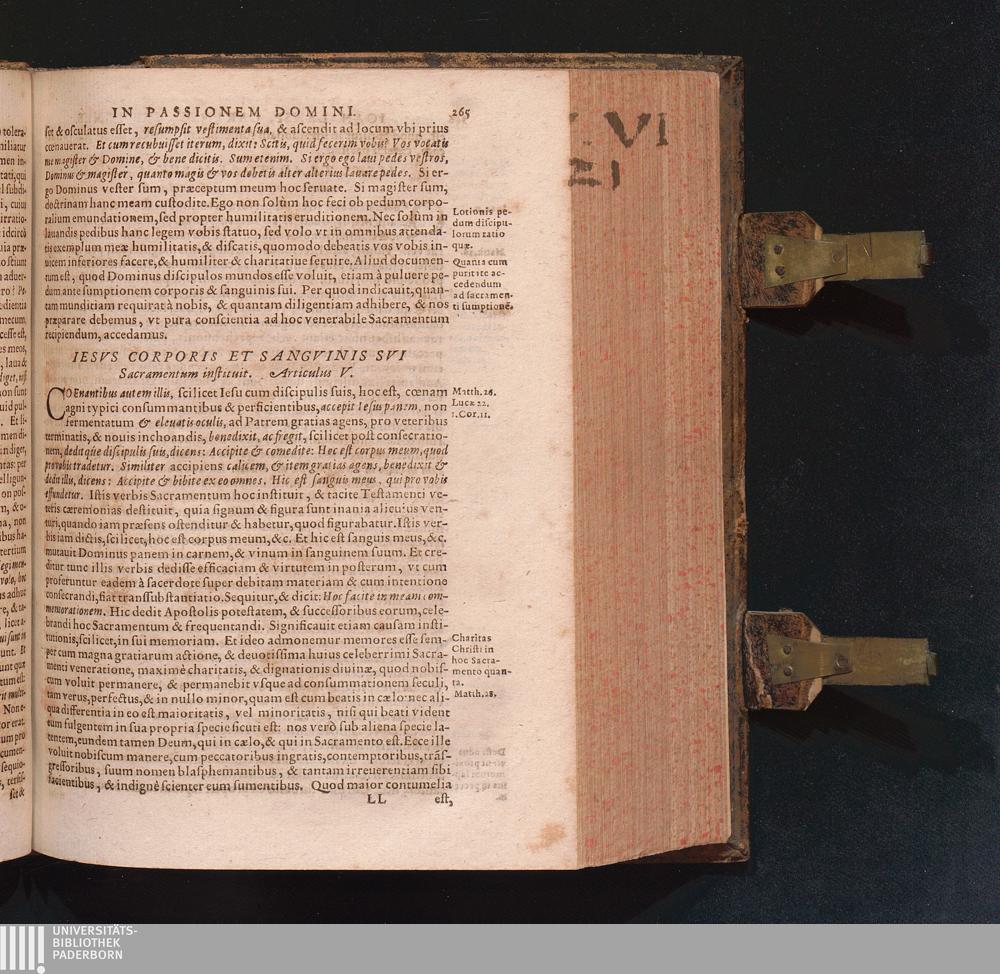 IN PASSIONEM DOMINI. 265
set & osculatus esset, resumpsit vestimenta sua, & ascendit ad locum vbi prius
cœnauerat. Et cum recubuisset iterum, dixit: Scitis, quid fecerim vobis? Vos vocatis
me magister & Domine, & bene dicitis. Sum etenim. Si ergo ego laui pedes vestros,
Dominus & magister, quanto magis & vos debetis alter alterius lauare pedes. Si er-
go Dominus vester sum, præceptum meum hoc seruate. Si magister sum,
doctrinam hanc meam custodite. Ego non solùm hoc feci ob pedum corpo-
ralium emundationem, sed propter humilitatis eruditionem. Nec solùm in
lauandis pedibus hanc legem vobis statuo, sed volo vt in omnibus attenda-
tis exemplum meæ humilitatis, & discatis, quomodo debeatis vos vobis in-
uicem inferiores facere, & humiliter & charitatiue seruire. Aliud documen-
tum est, quod Dominus discipulos mundos esse voluit, etiam à puluere pe-
dum ante sumptionem corporis & sanguinis sui. Per quod indicauit, quan-
tam munditiam requirat à nobis, & quantam diligentiam adhibere, & nos
præparare debemus, vt pura conscientia ad hoc venerabile Sacramentum
recipiendum, accedamus.
Lotionis pe-
dum discipu-
lorum ratio
quæ.
Quanta cum
puritate ac-
cedendum
ad sacramen-
ti sumptionē.
IESVS CORPORIS ET SANGVINIS SVI
Sacramentum instituit. Articulus V.
COEnantibus autem illis, scilicet Iesu cum discipulis suis, hoc est, cœnam
agni typici consummantibus & perficientibus, accepit Iesus panem, non
fermentatum & eleuatis oculis, ad Patrem gratias agens, pro veteribus
terminatis, & nouis inchoandis, benedixit, ac fregit, scilicet post consecratio-
nem, deditq́ue discipulis suis, dicens: Accipite & comedite: Hoc est corpus meum, quod
pro vobis tradetur. Similiter accipiens calicem, & item gratias agens, benedixit &
dedit illis, dicens: Accipite & bibite ex eo omnes. Hic est sanguis meus, qui pro vobis
effundetur. Istis verbis Sacramentum hoc instituit, & tacite Testamenti ve-
teris cæremonias destituit, quia signum & figura sunt inania alicuius ven-
turi, quando iam præsens ostenditur & habetur, quod figurabatur. Istis ver-
bis iam dictis, scilicet, hoc est corpus meum, &c. Et hic est sanguis meus, &c.
mutauit Dominus panem in carnem, & vinum in sanguinem suum. Et cre-
ditur tunc illis verbis dedisse efficaciam & virtutem in posterum, vt cum
proferuntur eadem à sacerdote super debitam materiam & cum intentione
consecrandi, fiat transsubstantiatio. Sequitur, & dicit: Hoc facite in meam com-
memorationem. Hic dedit Apostolis potestatem, & successoribus eorum, cele-
brandi hoc Sacramentum & frequentandi. Significauit etiam causam insti-
tutionis, scilicet, in sui memoriam. Et ideo admonemur memores esse sem-
per cum magna gratiarum actione, & deuotissima huius celeberrimi Sacra-
menti veneratione, maximè charitatis, & dignationis diuinæ, quod nobis-
cum voluit permanere, & permanebit vsque ad consummationem seculi,
tam verus, perfectus, & in nullo minor, quam est cum beatis in cælo: nec ali-
qua differentia in eo est maioritatis, vel minoritatis, nisi qui beati vident
eum fulgentem in sua propria specie sicuti est: nos verò sub aliena specie la-
tentem, eundem tamen Deum, qui in cælo, & qui in Sacramento est. Ecce ille
voluit nobiscum manere, cum peccatoribus ingratis, contemptoribus, trāſ-
gressoribus, suum nomen blasphemantibus, & tantam irreuerentiam sibi
facientibus, & indignè scienter eum sumentibus. Quod maior contumelia
Matth. 26.
Lucæ 22.
1. Cor. 11.
Charitas
Christi in
hoc Sacra-
mento quan-
ta.
Matth. 28.
LL est,
VI
21
UNIVERSITÄTS-
BIBLIOTHEK
PADERBORN